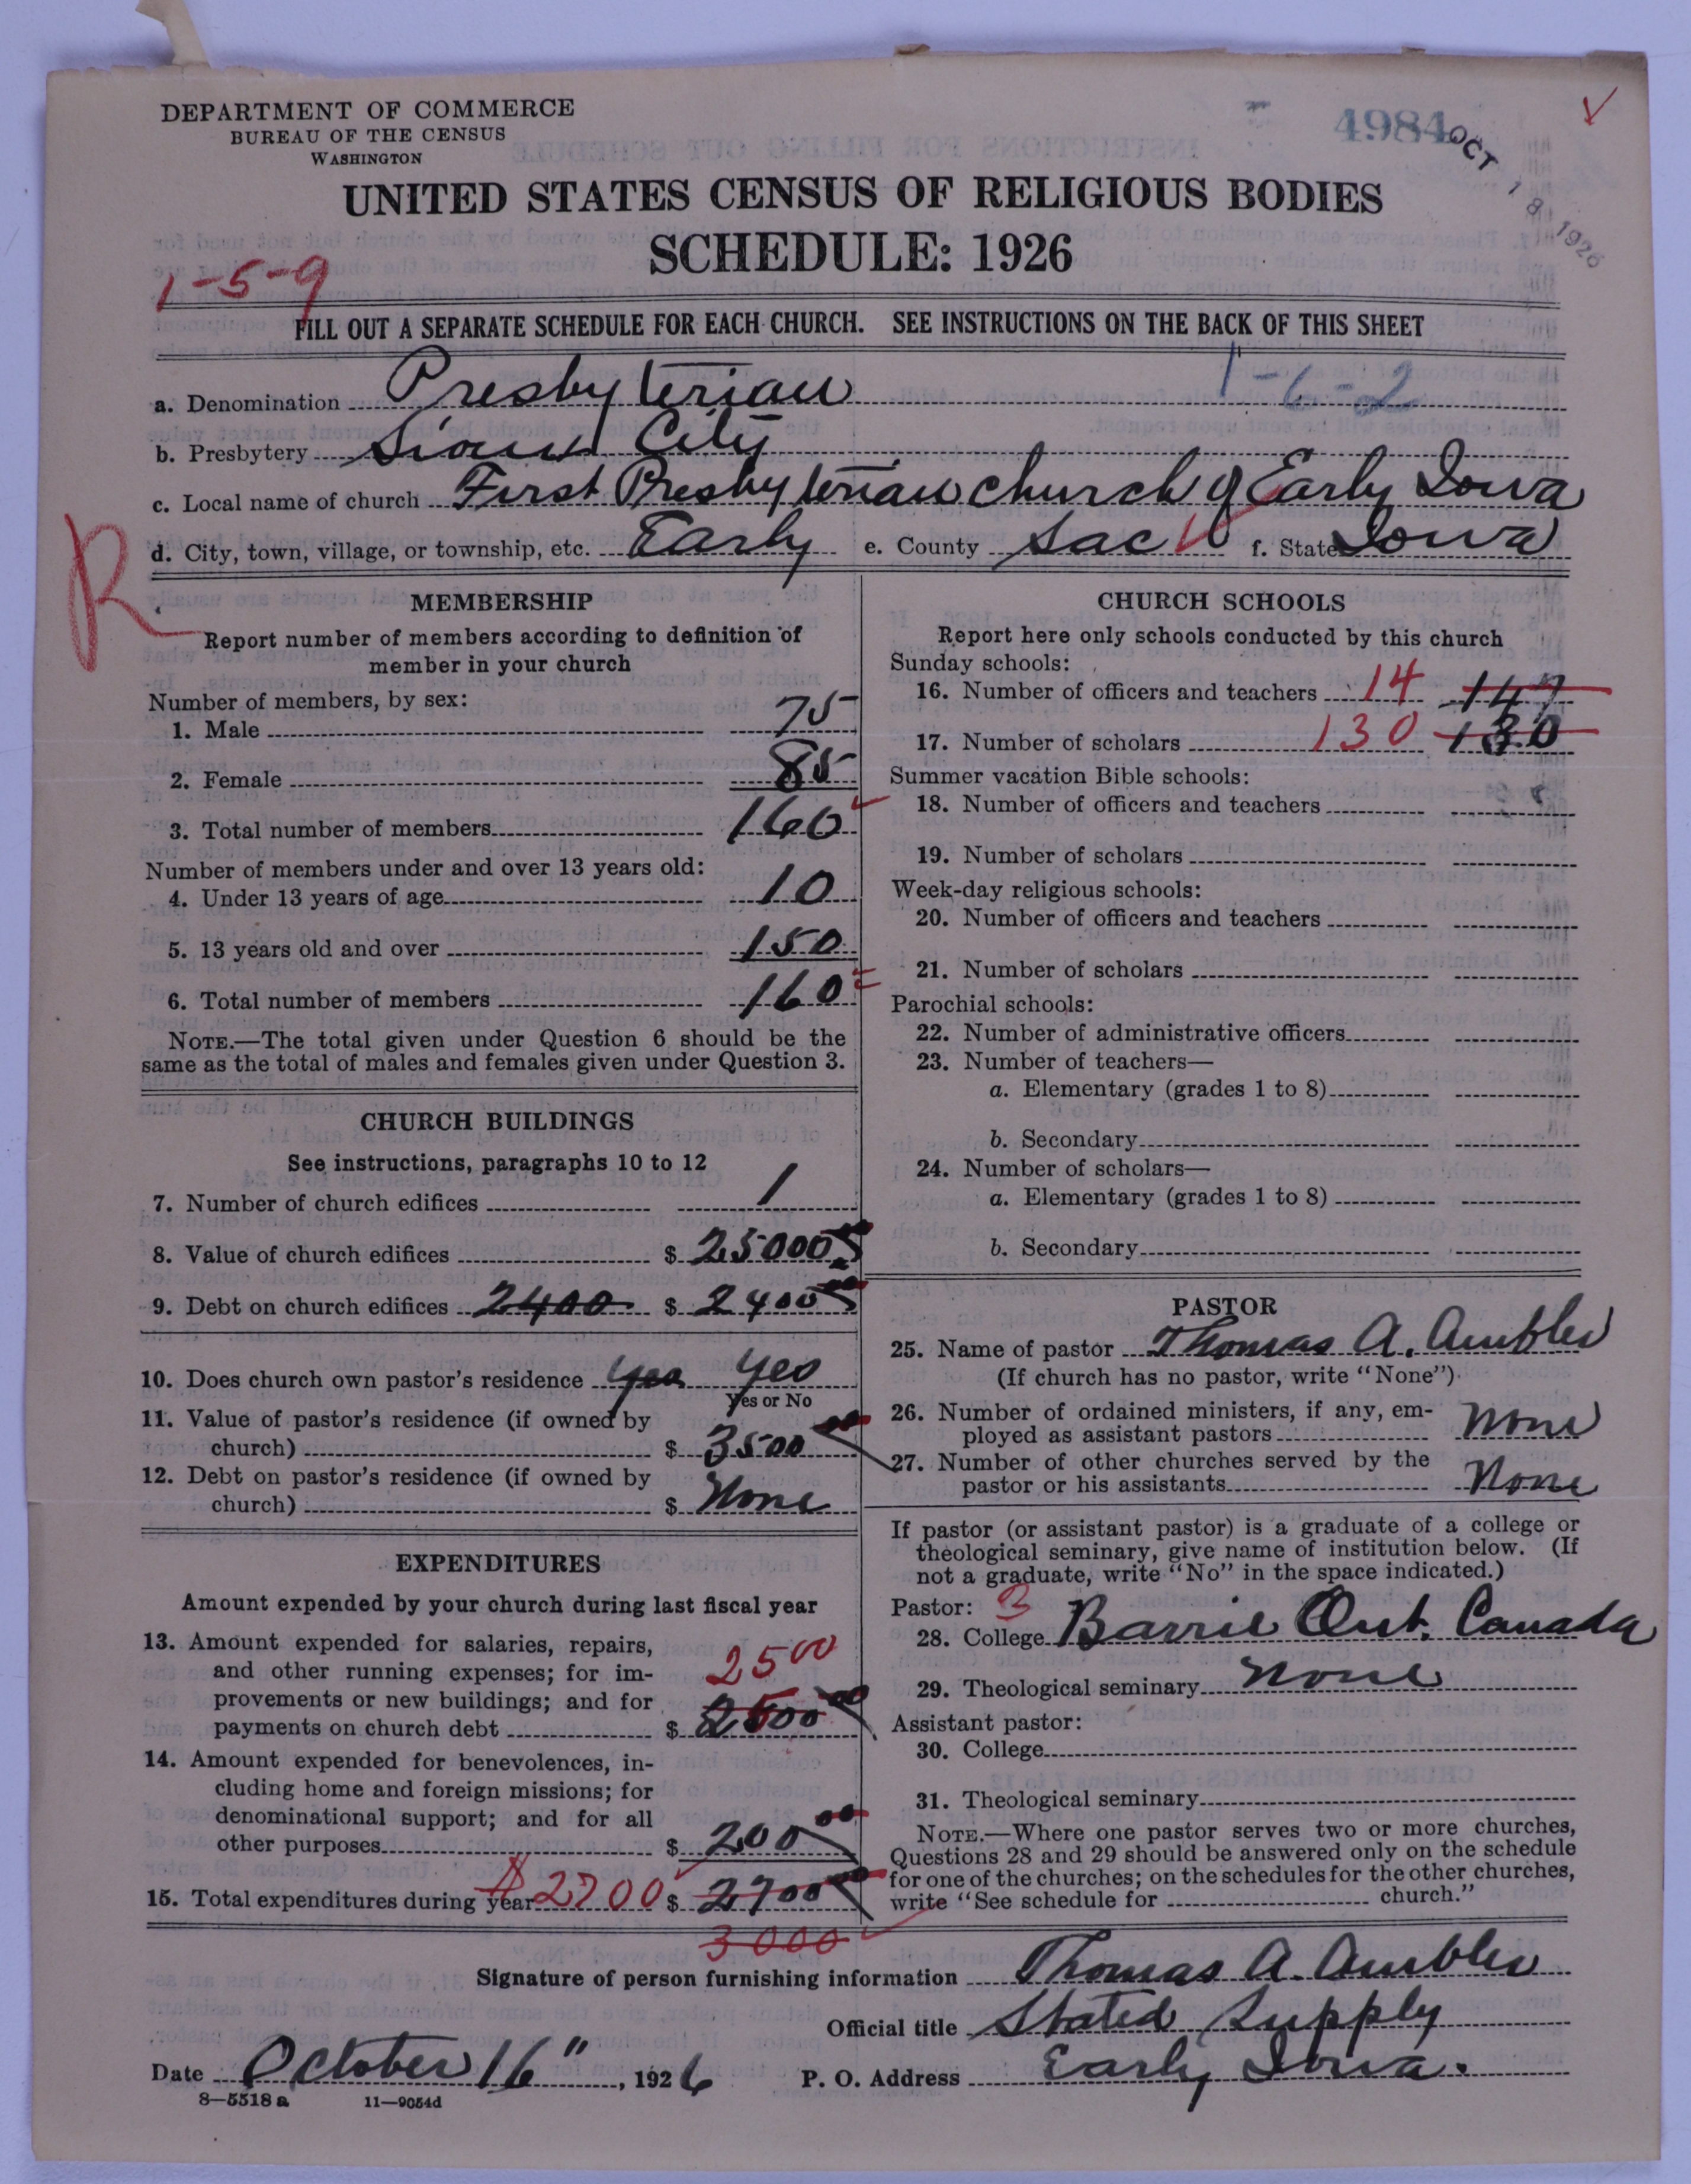 DEPARTMENT OF COMMERCE
BUREAU OF THE CENSUS
WASHINGTON
4984
OCT 18 1926
UNITED STATES CENSUS OF RELIGIOUS BODIES
SCHEDULE: 1926
1-5-9
FILL OUT A SEPARATE SCHEDULE FOR EACH CHURCH. SEE INSTRUCTIONS ON THE BACK OF THIS SHEET
1-6-2
a. Denomination Presbyterian
b. Presbytery Sioux City
c. Local name of church First Presbyterian church of Early Iowa
d. City, town, village, or township, etc. Early e. County Sac f. State Iowa
R
MEMBERSHIP
Report number of members according to definition of
member in your church
Number of members, by sex:
1. Male 75
2. Female 85
3. Total number of members 160
Number of members under and over 13 years old:
4. Under 13 years of age 10
5. 13 years old and over 150
6. Total number of members 160
NOTE.—The total given under Question 6 should be the
same as the total of males and females given under Question 3.
CHURCH BUILDINGS
See instructions, paragraphs 10 to 12
7. Number of church edifices 1
8. Value of church edifices $ 25000
9. Debt on church edifices 2400 $ 2400
10. Does church own pastor's residence Yes Yes
Yes or No
11. Value of pastor's residence (if owned by
church) $ 3500
12. Debt on pastor's residence (if owned by
church) $ None
EXPENDITURES
Amount expended by your church during last fiscal year
13. Amount expended for salaries, repairs,
and other running expenses; for im-
provements or new buildings; and for
payments on church debt $ 2500
2500
14. Amount expended for benevolences, in-
cluding home and foreign missions; for
denominational support; and for all
other purposes $ 200 00
15. Total expenditures during year $2700 $ 2700
3000
CHURCH SCHOOLS
Report here only schools conducted by this church
Sunday schools:
16. Number of officers and teachers 14 147
17. Number of scholars 130 130
Summer vacation Bible schools:
18. Number of officers and teachers
19. Number of scholars
Week-day religious schools:
20. Number of officers and teachers
21. Number of scholars
Parochial schools:
22. Number of administrative officers
23. Number of teachers—
a. Elementary (grades 1 to 8)
b. Secondary
24. Number of scholars—
a. Elementary (grades 1 to 8)
b. Secondary
PASTOR
25. Name of pastor Thomas A. Ambler
(If church has no pastor, write "None")
26. Number of ordained ministers, if any, em-
ployed as assistant pastors None
27. Number of other churches served by the
pastor or his assistants None
If pastor (or assistant pastor) is a graduate of a college or
theological seminary, give name of institution below. (If
not a graduate, write "No" in the space indicated.)
Pastor: 3
28. College Barrie Ont. Canada
29. Theological seminary None
Assistant pastor:
30. College
31. Theological seminary
NOTE.—Where one pastor serves two or more churches,
Questions 28 and 29 should be answered only on the schedule
for one of the churches; on the schedules for the other churches,
write "See schedule for church."
Signature of person furnishing information Thomas A. Ambler
Official title Stated Supply
Date October 16", 1926 P. O. Address Early, Iowa.
8—5518 a 11—9054d